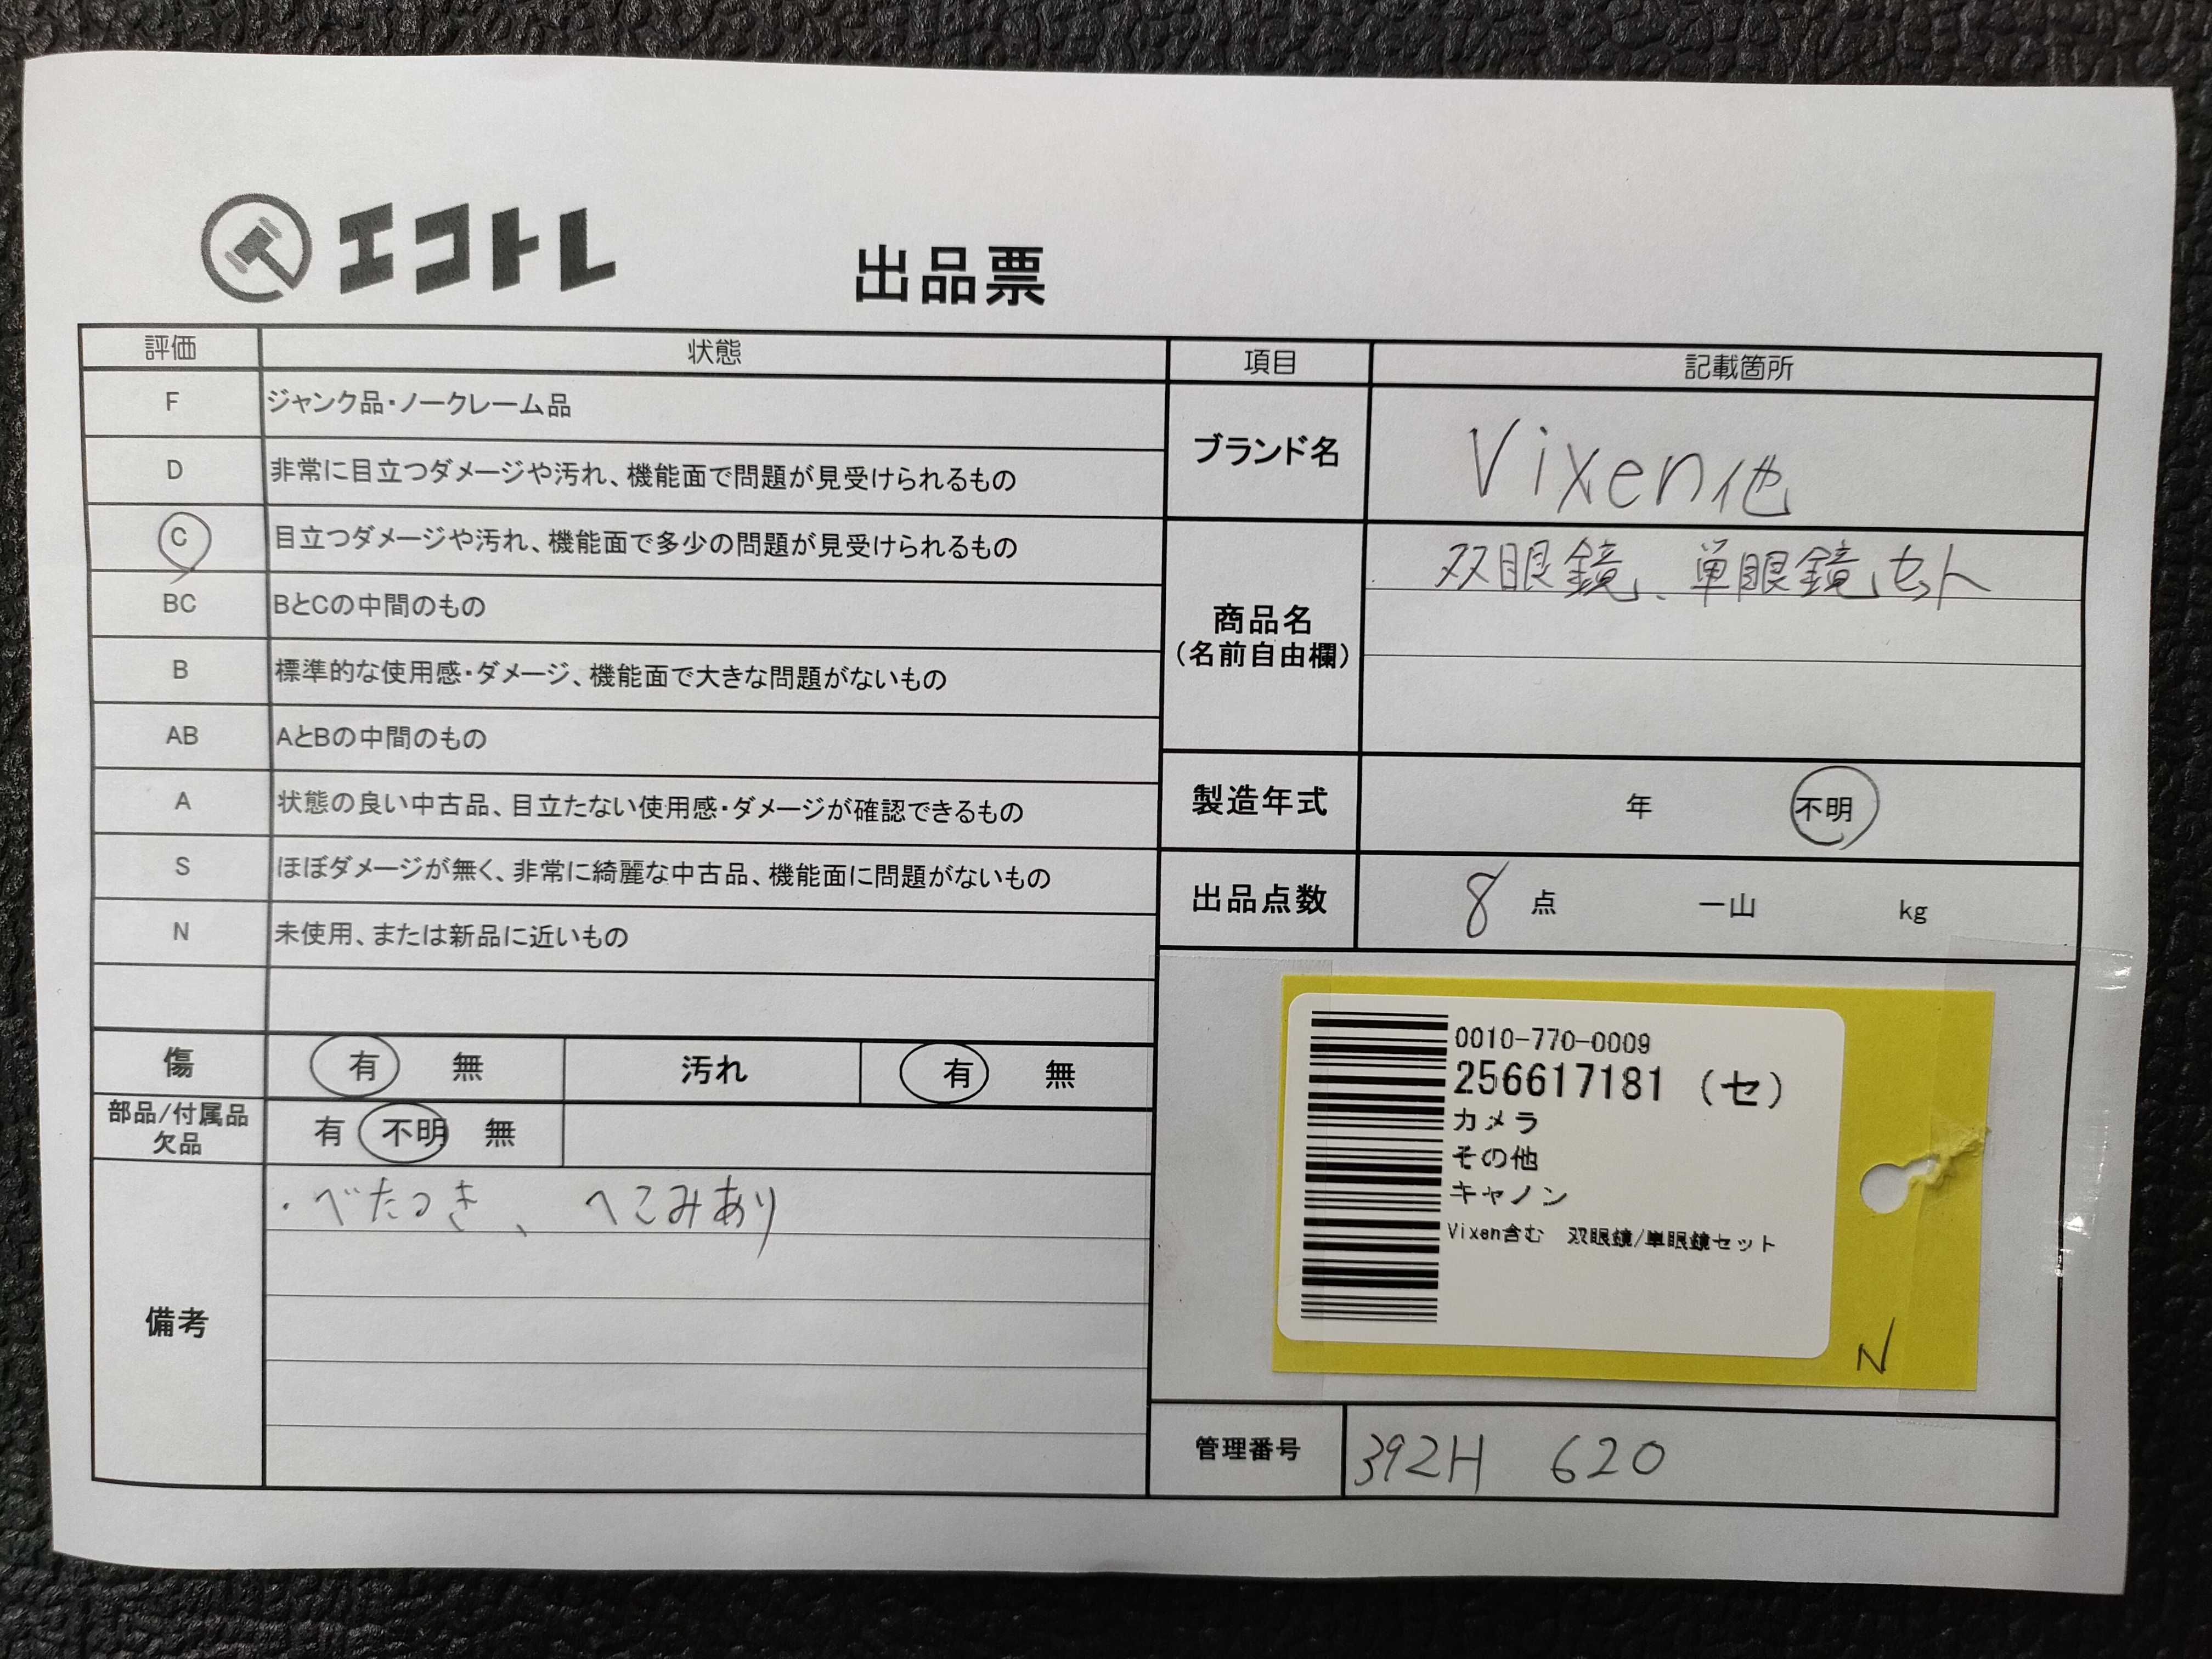 エコトレ
出品票
評価 状態
F ジャンク品・ノークレーム品
D 非常に目立つダメージや汚れ、機能面で問題が見受けられるもの
C 目立つダメージや汚れ、機能面で多少の問題が見受けられるもの
BC BとCの中間のもの
B 標準的な使用感・ダメージ、機能面で大きな問題がないもの
AB AとBの中間のもの
A 状態の良い中古品、目立たない使用感・ダメージが確認できるもの
S ほぼダメージが無く、非常に綺麗な中古品、機能面に問題がないもの
N 未使用、または新品に近いもの
傷 有 無 汚れ 有 無
部品/付属品
欠品
有 不明 無
備考
・べたつき、へこみあり
項目 記載箇所
ブランド名 Vixen他
商品名
(名前自由欄)
双眼鏡、単眼鏡セット
製造年式 年 不明
出品点数 8 点 一山 kg
0010-770-0009
256617181 (セ)
カメラ
その他
キャノン
Vixen含む 双眼鏡/単眼鏡セット
N
管理番号 392H 620